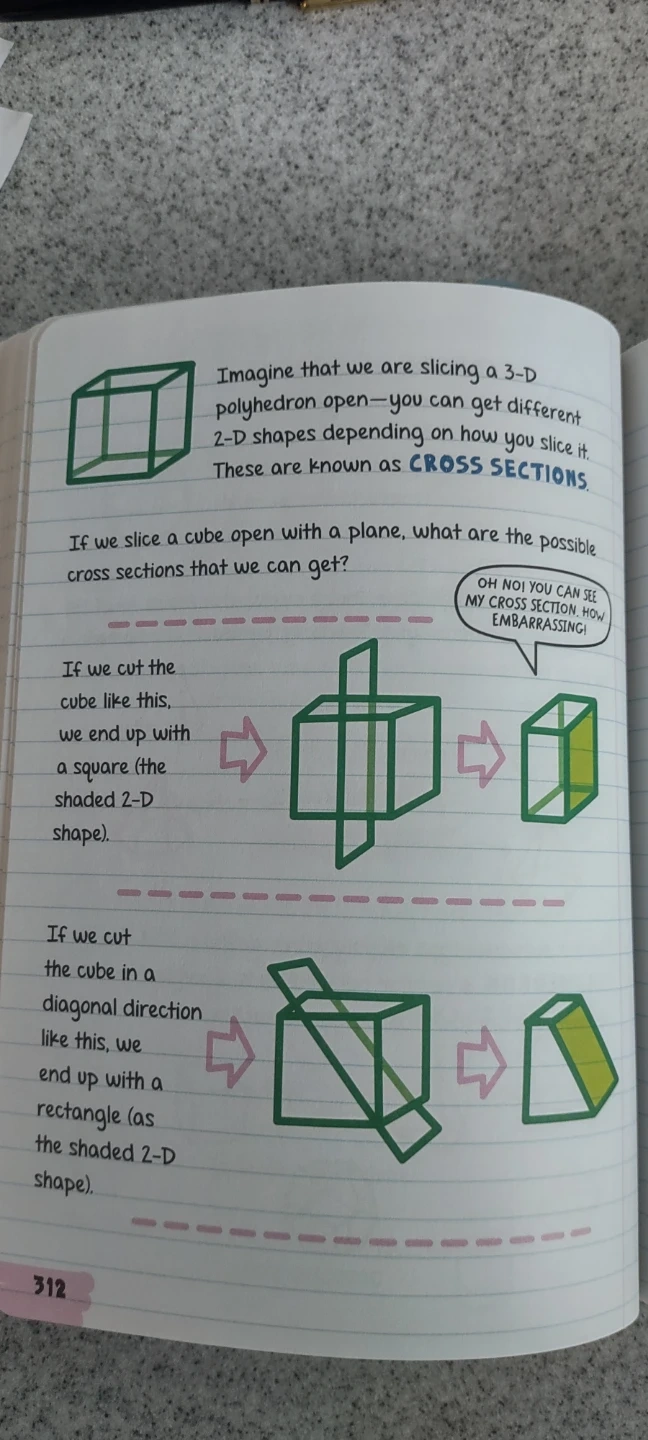 Imagine that we are slicing a 3-D
polyhedron open—you can get different
2-D shapes depending on how you slice it.
These are known as CROSS SECTIONS.
If we slice a cube open with a plane, what are the possible
cross sections that we can get?
OH NO! YOU CAN SEE
MY CROSS SECTION. HOW
EMBARRASSING!
If we cut the
cube like this,
we end up with
a square (the
shaded 2-D
shape).
If we cut
the cube in a
diagonal direction
like this, we
end up with a
rectangle (as
the shaded 2-D
shape).
312